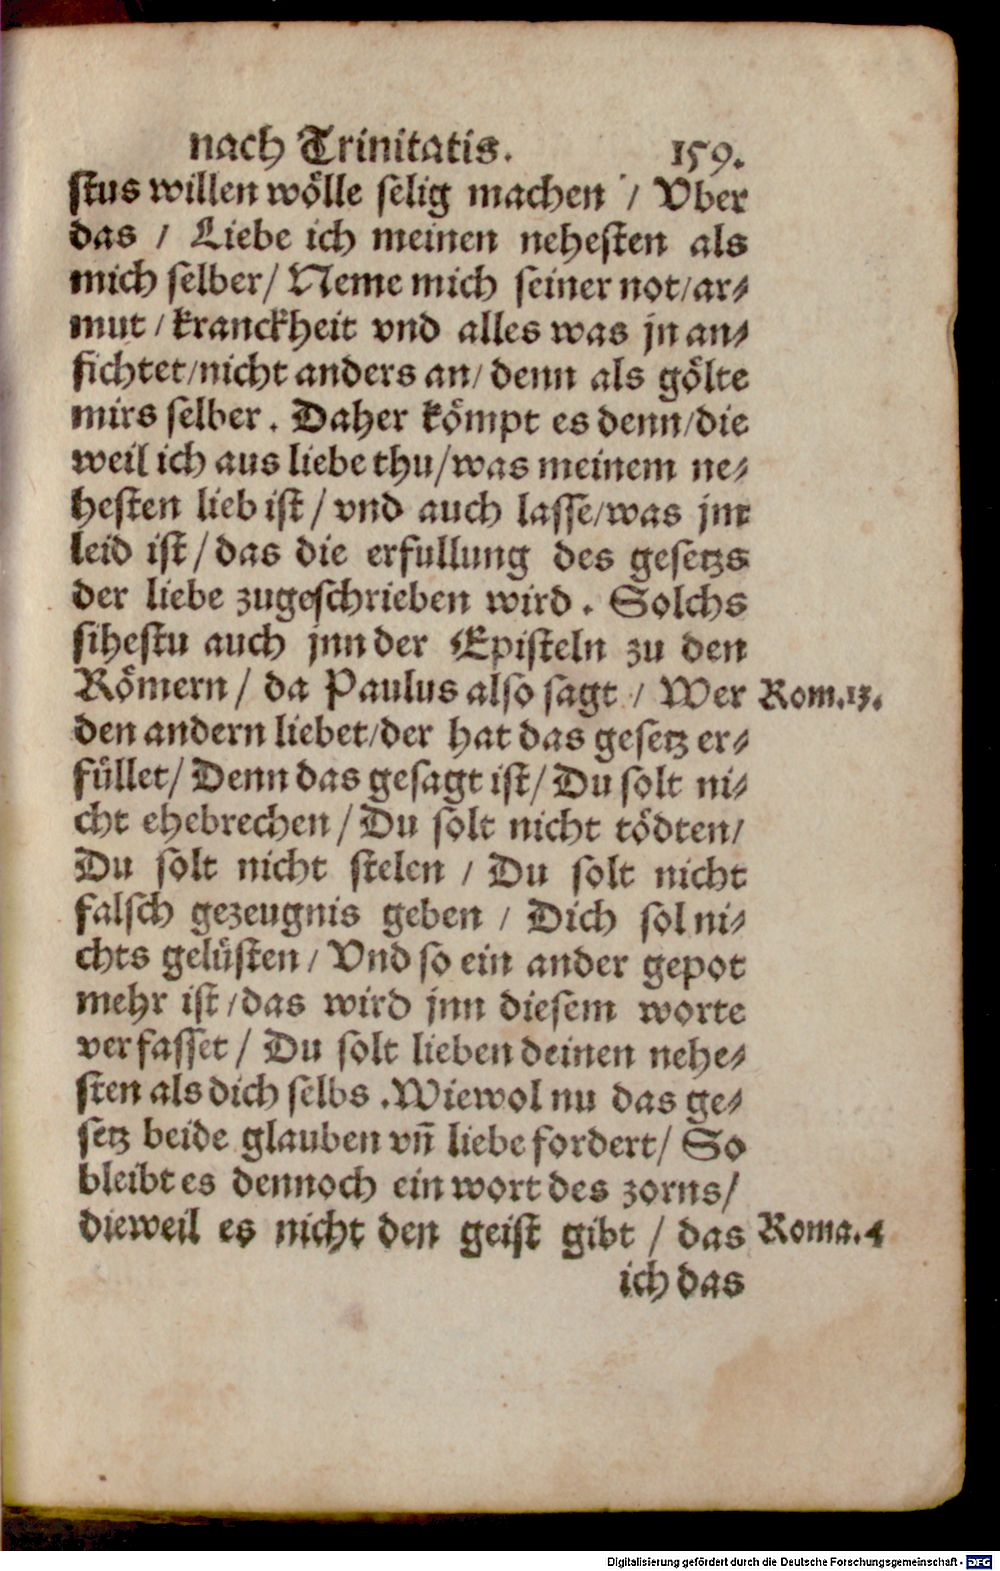 nach Trinitatis. 159.
stus willen wölle selig machen / Vber
das / Liebe ich meinen nehesten als
mich selber/ Neme mich seiner not/ar⸗
mut / kranckheit vnd alles was jn an⸗
fichtet/nicht anders an/ denn als gölte
mirs selber. Daher kömpt es denn/die
weil ich aus liebe thu/was meinem ne⸗
hesten lieb ist / vnd auch lasse/was jm
leid ist / das die erfullung des gesetzs
der liebe zugeschrieben wird. Solchs
sihestu auch jnn der Episteln zu den
Römern / da Paulus also sagt / Wer Rom.13.
den andern liebet/der hat das gesetz er⸗
füllet/ Denn das gesagt ist/ Du solt ni⸗
cht ehebrechen / Du solt nicht tödten/
Du solt nicht stelen / Du solt nicht
falsch gezeugnis geben / Dich sol ni⸗
chts gelüsten / Vnd so ein ander gepot
mehr ist /das wird jnn diesem worte
verfasset / Du solt lieben deinen nehe⸗
sten als dich selbs. Wiewol nu das ge⸗
setz beide glauben vñ liebe fordert/ So
bleibt es dennoch ein wort des zorns/
dieweil es nicht den geist gibt / das Roma.4
ich das
Digitalisierung gefördert durch die Deutsche Forschungsgemeinschaft - DFG